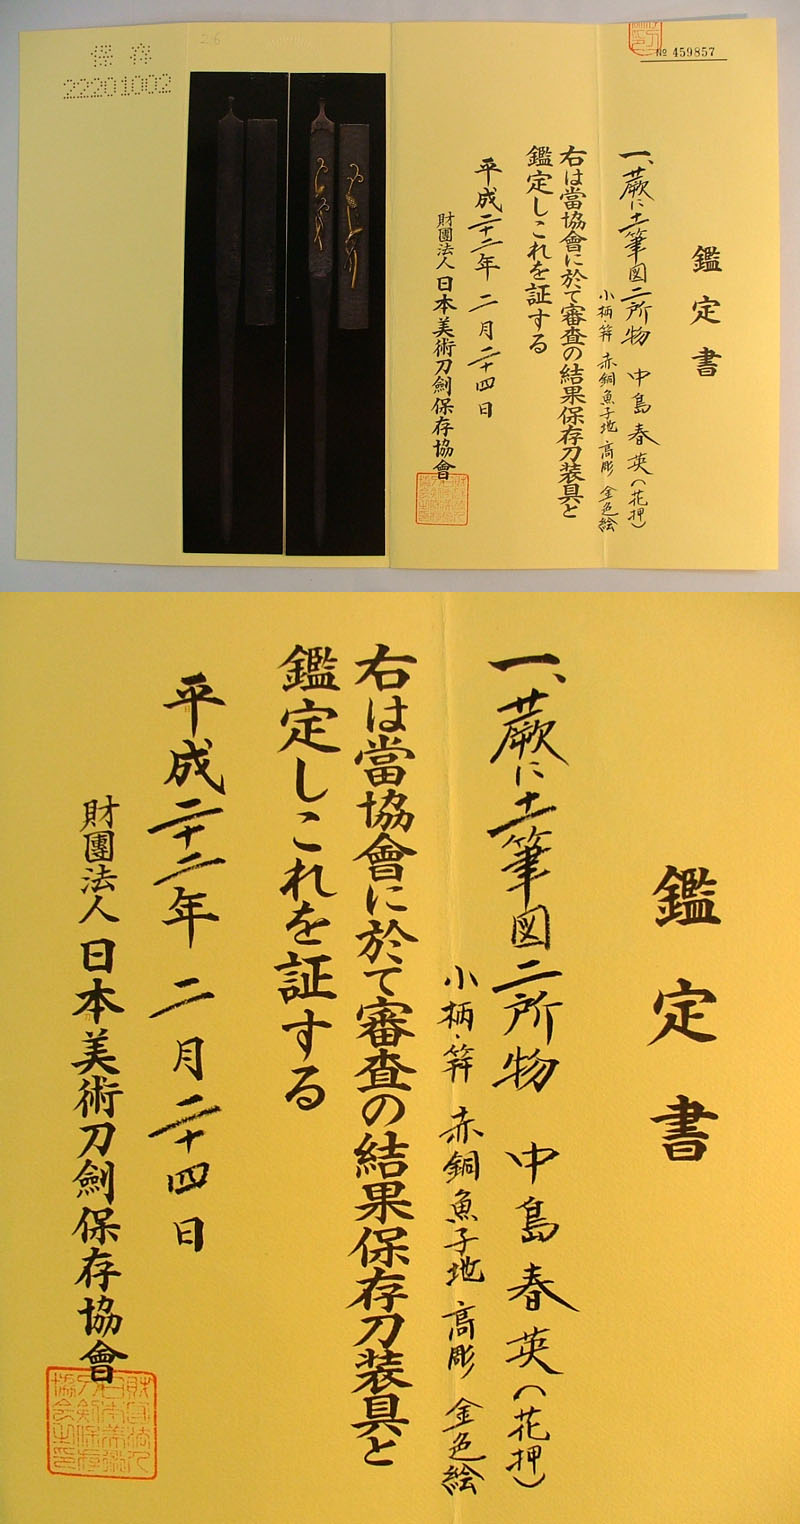 保存
22201002
26
№ 459857
鑑定書
一、蕨に土筆図二所物 中島春英(花押)
小柄・笄 赤銅魚子地 高彫 金色絵
右は當協會に於て審査の結果保存刀装具と
鑑定しこれを証する
平成二十二年 二月二十四日
財團法人 日本美術刀劍保存協會
鑑定書
一、蕨に土筆図二所物 中島春英(花押)
小柄・笄 赤銅魚子地 高彫 金色絵
右は當協會に於て審査の結果保存刀装具と
鑑定しこれを証する
平成二十二年 二月二十四日
財團法人 日本美術刀劍保存協會